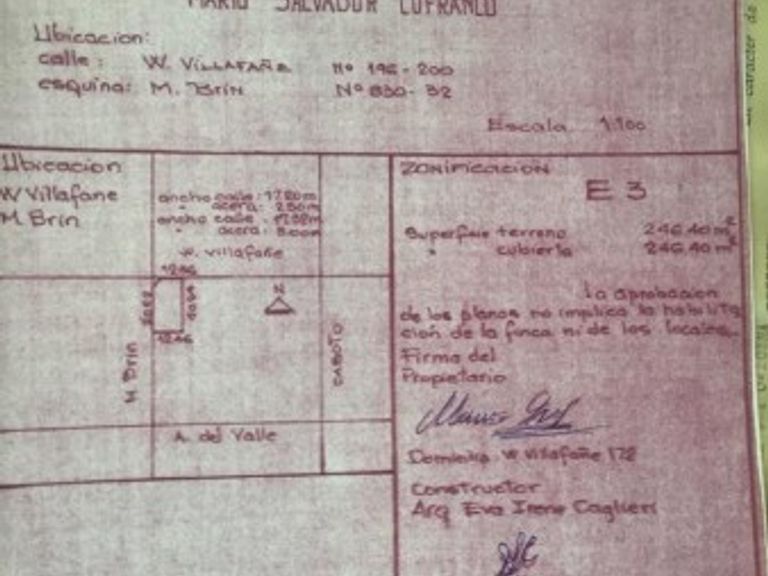 MARIO SALVADOR LOFRANCO
Ubicacion:
calle: W. VILLAFAÑE Nº 196-200
esquina: M. Brin Nº 830-32
Escala 1:100
Ubicacion
W Villafane
M. Brin
ancho calle: 17.20m
" acera: 2.50m
ancho calle:
" acera: 3.00m
W. Villafañe
12.46
12.46
N
M Brin
CABOTO
A. del Valle
ZONIFICACION
E 3
Superficie terreno 246.40 m²
" cubierta 246.40 m²
la aprobacion
de los planos no implica la habilita
cion de la finca ni de los locales.
Firma del
Propietario
Domicilio W Villafañe 172
Constructor
Arq Eva Irene Caglieri
caracter de